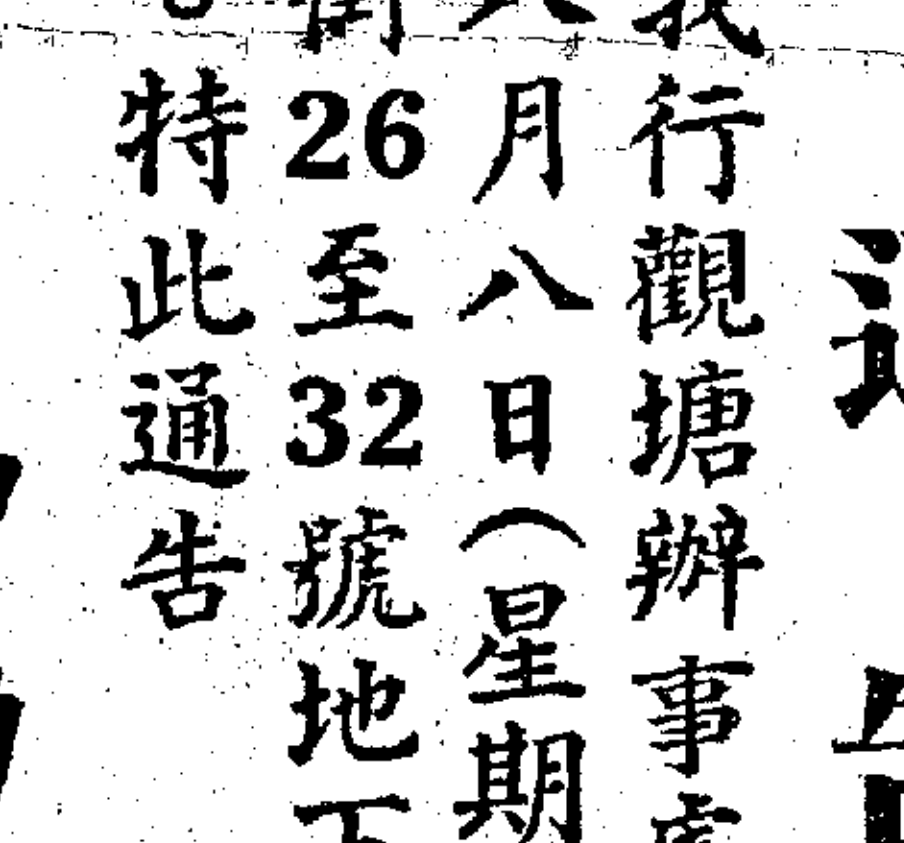 我行觀塘辦事處
月八日（星期
街26至32號地下
特此通告